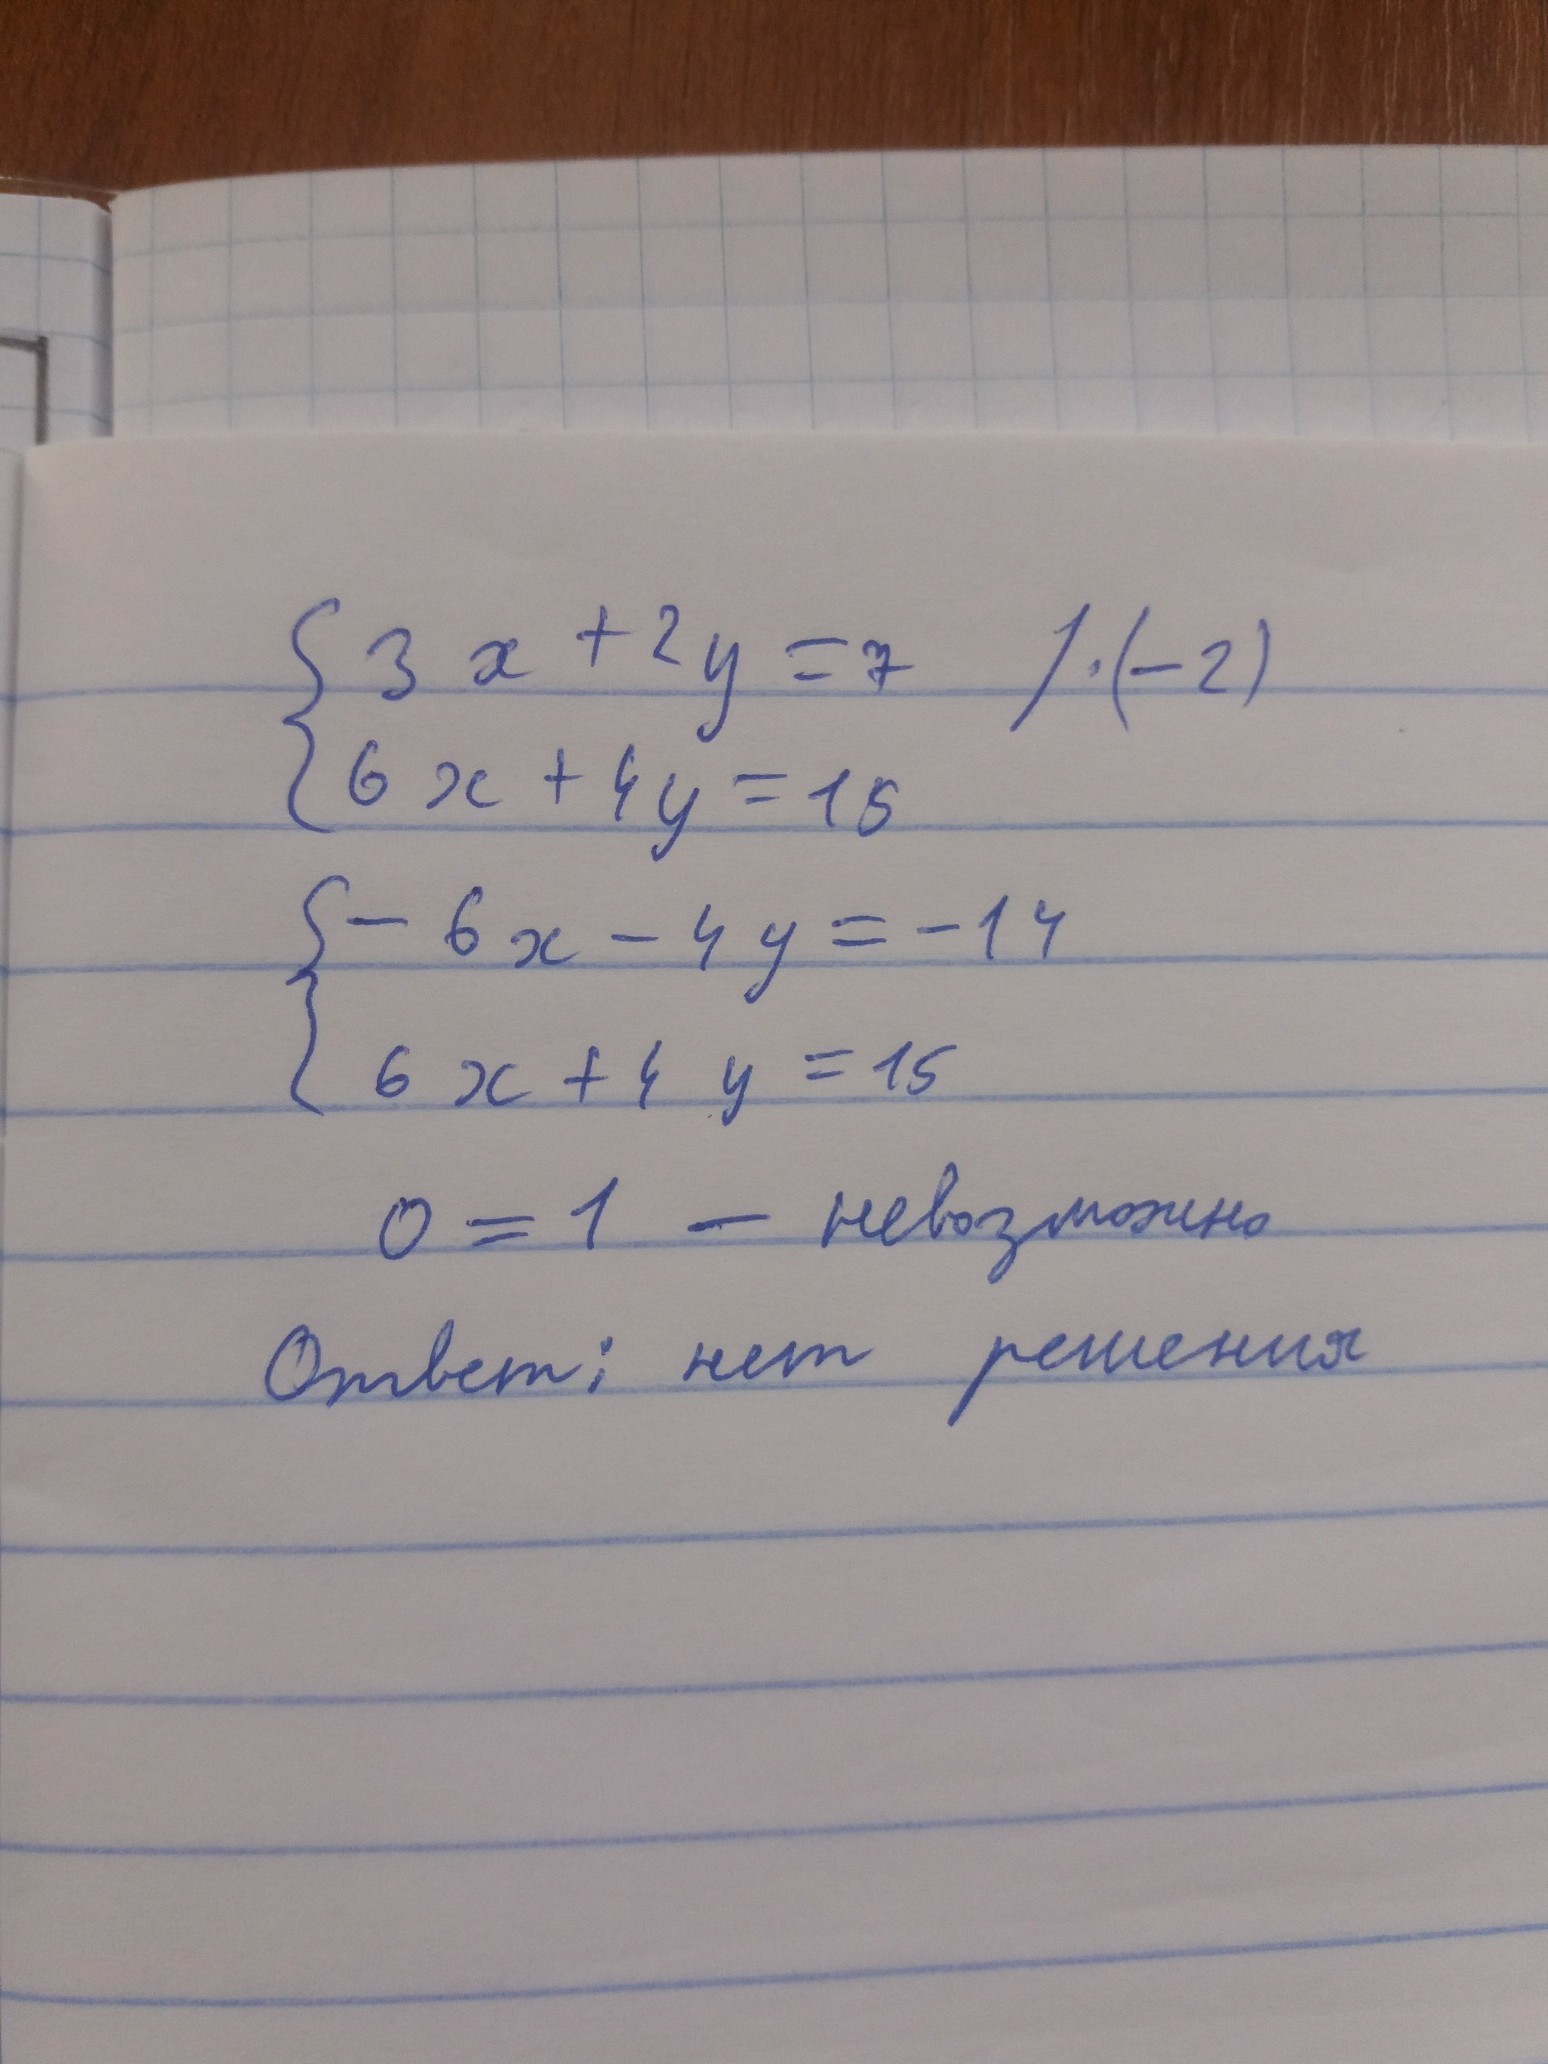 { 3x + 2y = 7 / · (-2)
6x + 4y = 15
{ - 6x - 4y = -14
6x + 4y = 15
0 = 1 — невозможно
Ответ: нет решения